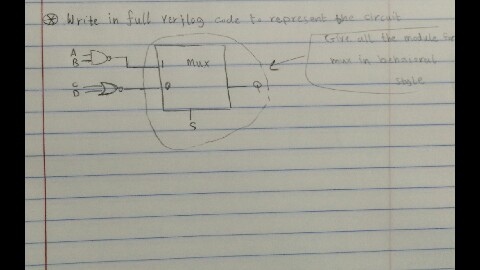 ⊗ Write in full verilog code to represent the circuit
Give all the module for
mux in behavioral
style
A
B
1
Mux
C
D
0
Q
S